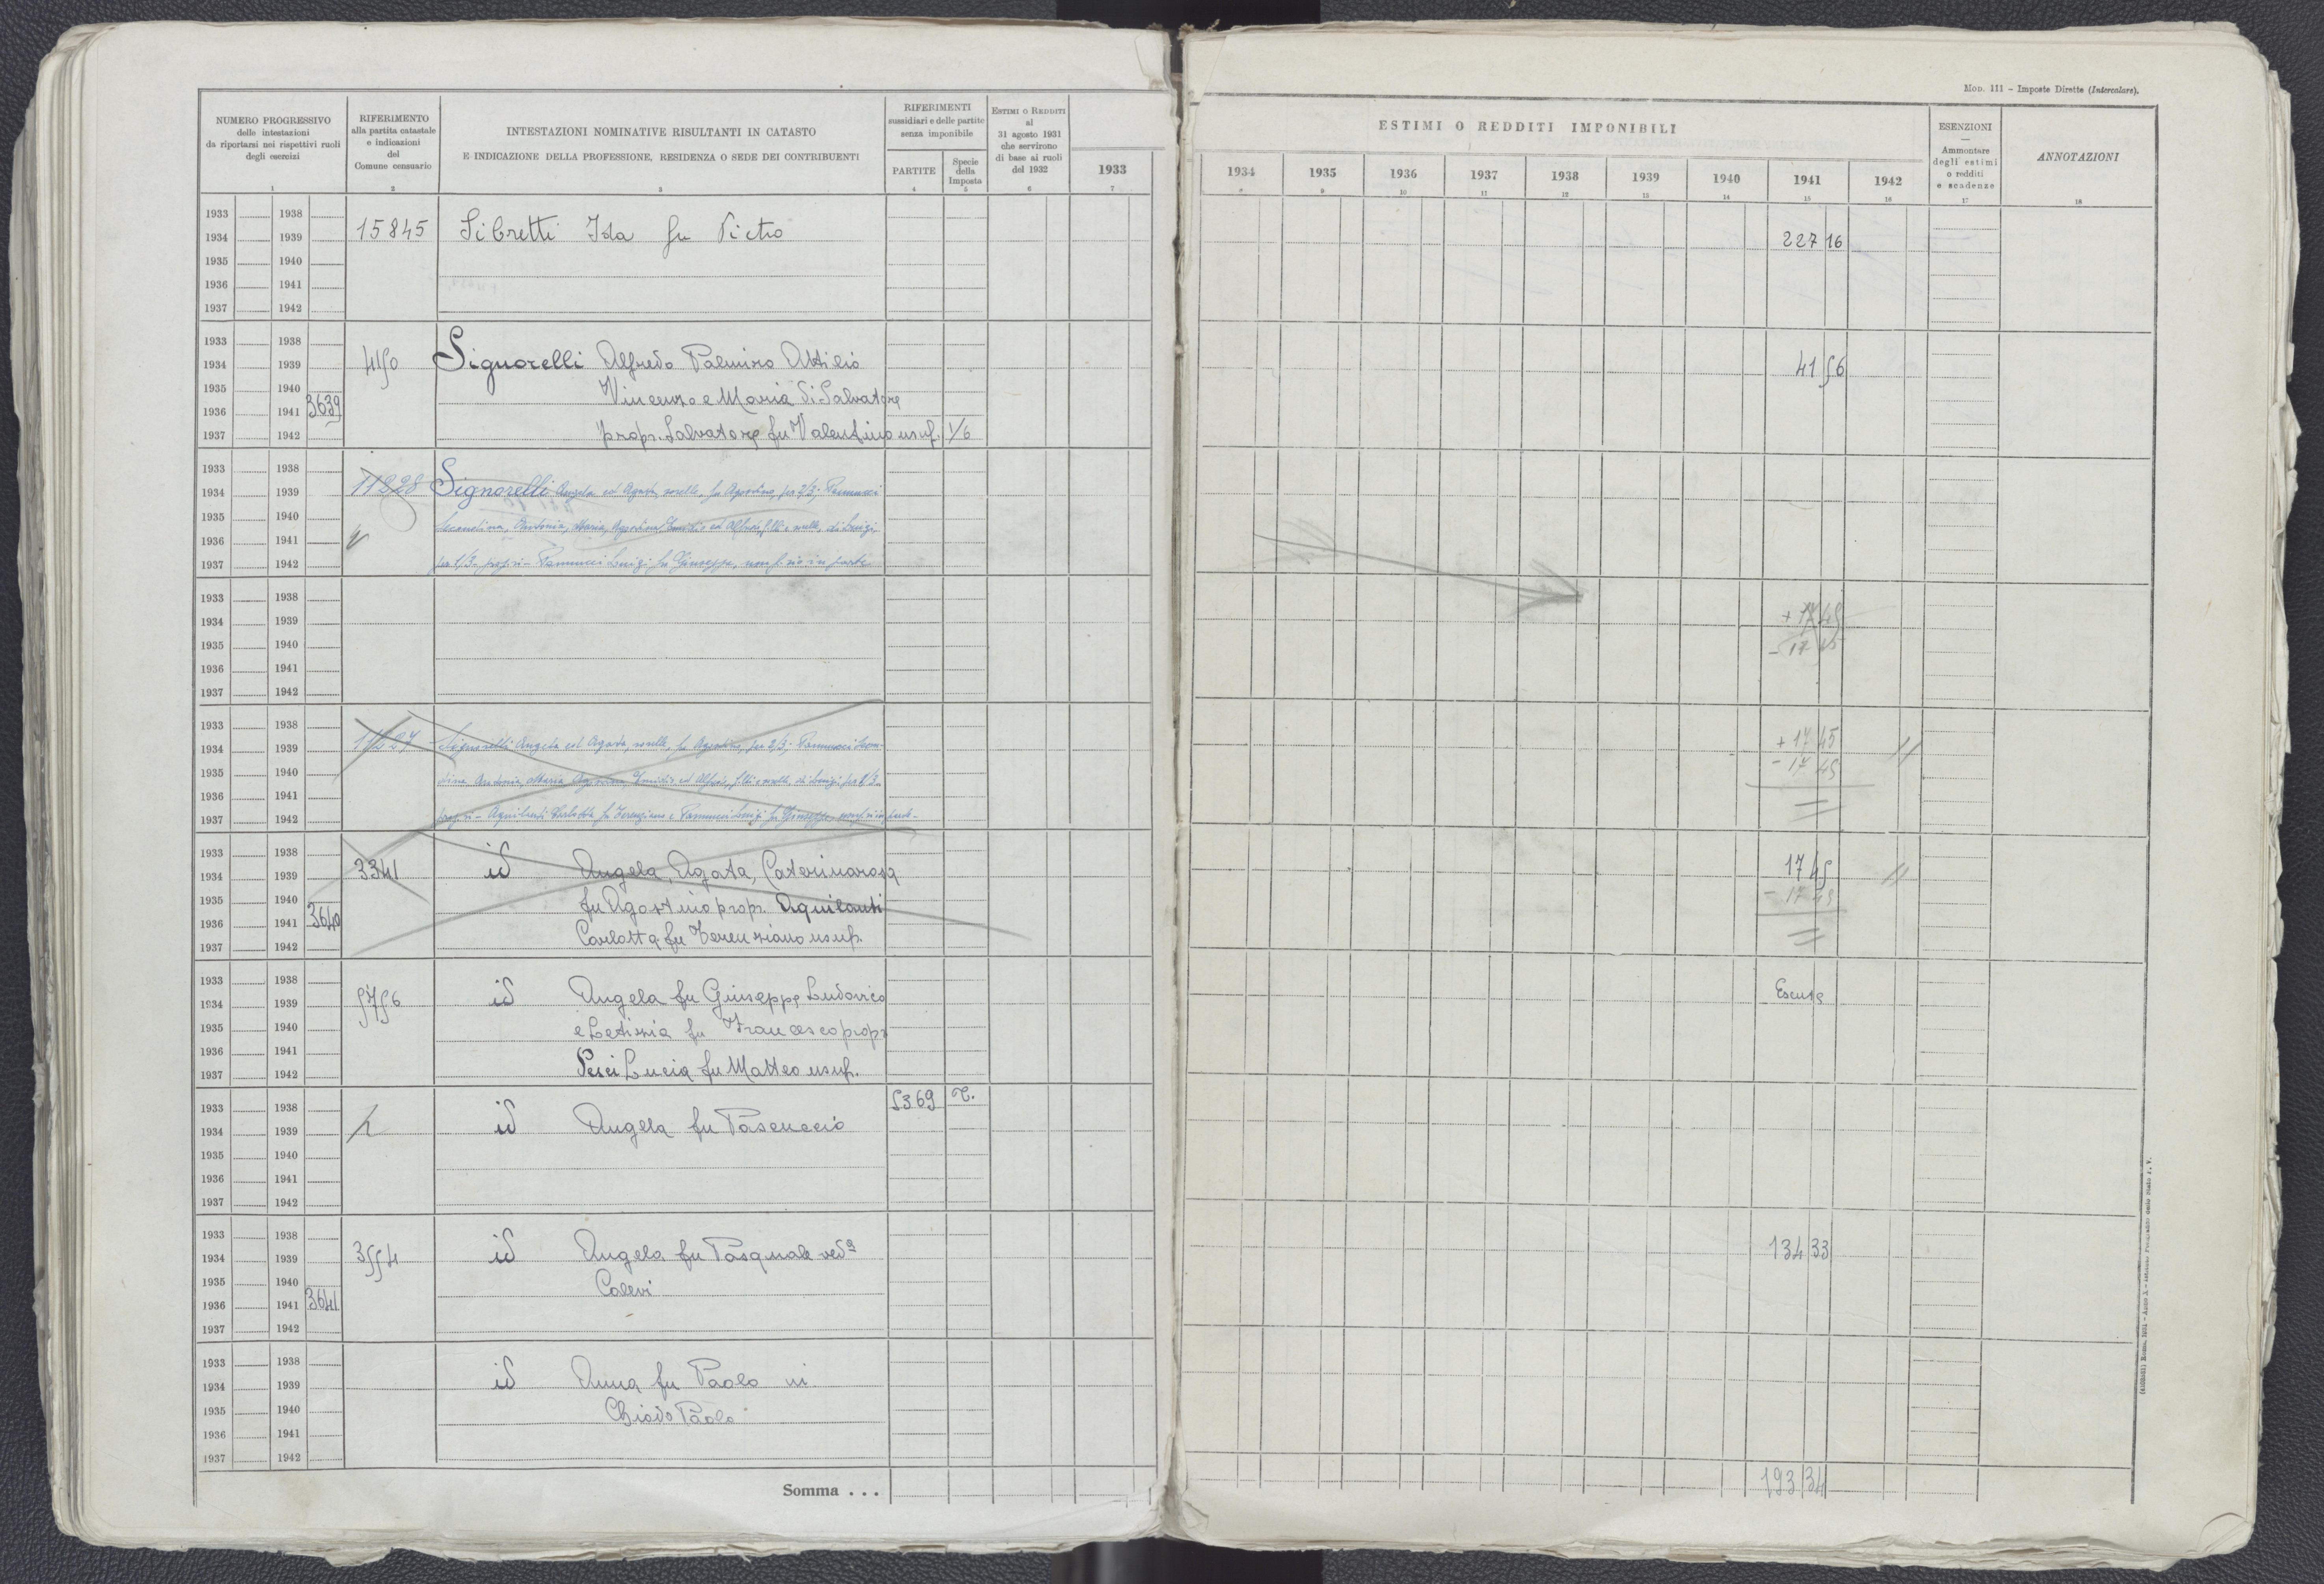 MOD. 111 – Imposte Dirette (Intercalare).
NUMERO PROGRESSIVO
delle intestazioni
da riportarsi nei rispettivi ruoli
degli esercizi
1
RIFERIMENTO
alla partita catastale
e indicazioni
del
Comune censuario
2
INTESTAZIONI NOMINATIVE RISULTANTI IN CATASTO
E INDICAZIONE DELLA PROFESSIONE, RESIDENZA O SEDE DEI CONTRIBUENTI
3
RIFERIMENTI
sussidiari e delle partite
senza imponibile
PARTITE
4
Specie
della
Imposta
5
ESTIMI O REDDITI
al
31 agosto 1931
che servirono
di base ai ruoli
del 1932
6
1933
7
ESTIMI O REDDITI IMPONIBILI
1934 1935 1936 1937 1938 1939 1940 1941 1942
8 9 10 11 12 13 14 15 16
ESENZIONI
—
Ammontare
degli estimi
o redditi
e scadenze
17
ANNOTAZIONI
18
1933 1938
1934 1939 15845 Sibretti Ida fu Pietro 227 16
1935 1940
1936 1941
1937 1942
1933 1938
1934 1939 4150 Signorelli Alfredo Palmiro Attilio 41 56
1935 1940 Vincenzo e Maria di Salvatore
1936 1941 3639
1937 1942 propr. Salvatore fu Valentino usuf. 1/6
1933 1938
1934 1939 11228 Signorelli Angela ed Agata, sorelle, fu Agostino, per 2/3; Pannucci
1935 1940 Leondina, Antonia, Maria, Agostina, Emidio ed Alfredo, f.lli e sorelle, di Luigi,
1936 1941
1937 1942 per 1/3, propri – Pannucci Luigi fu Giuseppe, usuf.rio in parte
1933 1938
1934 1939 + 17 45
1935 1940 - 17 45
1936 1941
1937 1942
1933 1938
1934 1939 11227 Signorelli Angela ed Agata, sorelle, fu Agostino, per 2/3; Pannucci Leon-
+ 17 45
- 17 45
1935 1940 dina, Antonia, Maria, Agostina, Emidio ed Alfredo, f.lli e sorelle, di Luigi per 1/3
1936 1941
1937 1942 propri – Aquilanti Carlotta fu Terenziano e Pannucci Luigi fu Giuseppe usuf.rii in parte –
1933 1938
1934 1939 3341 id Angela, Agata, Caterinarosa 17 45
1935 1940 fu Agostino propr. Aquilanti - 17 45
1936 1941 3640
1937 1942 Carlotta fu Terenziano usuf.
1933 1938
1934 1939 5756 id Angela fu Giuseppe Ludovico Esente
1935 1940 e Letizia fu Francesco propr
1936 1941
1937 1942 Pesci Lucia fu Matteo usuf.
1933 1938 5369 T.
1934 1939 id Angela fu Pascuccio
1935 1940
1936 1941
1937 1942
1933 1938
1934 1939 3554 id Angela fu Pasquale ved.a 134 33
1935 1940 Calevi
1936 1941 3641
1937 1942
1933 1938
1934 1939 id Anna fu Paolo in
1935 1940 Chiodo Paolo
1936 1941
1937 1942
Somma . . . 193 34